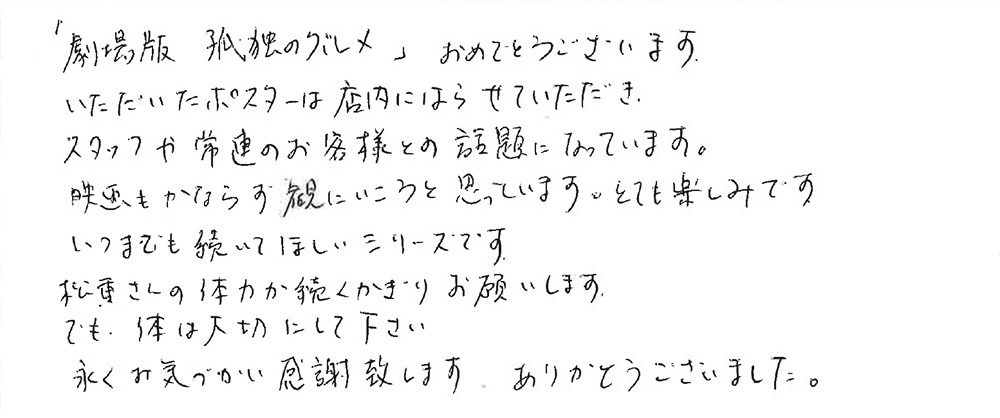 「劇場版 孤独のグルメ」おめでとうございます.
いただいたポスターは店内にはらせていただき.
スタッフや常連のお客様との話題になっています。
映画もかならず観にいこうと思っています。とても楽しみです
いつまでも続いてほしいシリーズです.
松重さんの体力が続くかぎりお願いします.
でも.体は大切にして下さい
永くお気づかい感謝致します. ありがとうございました。